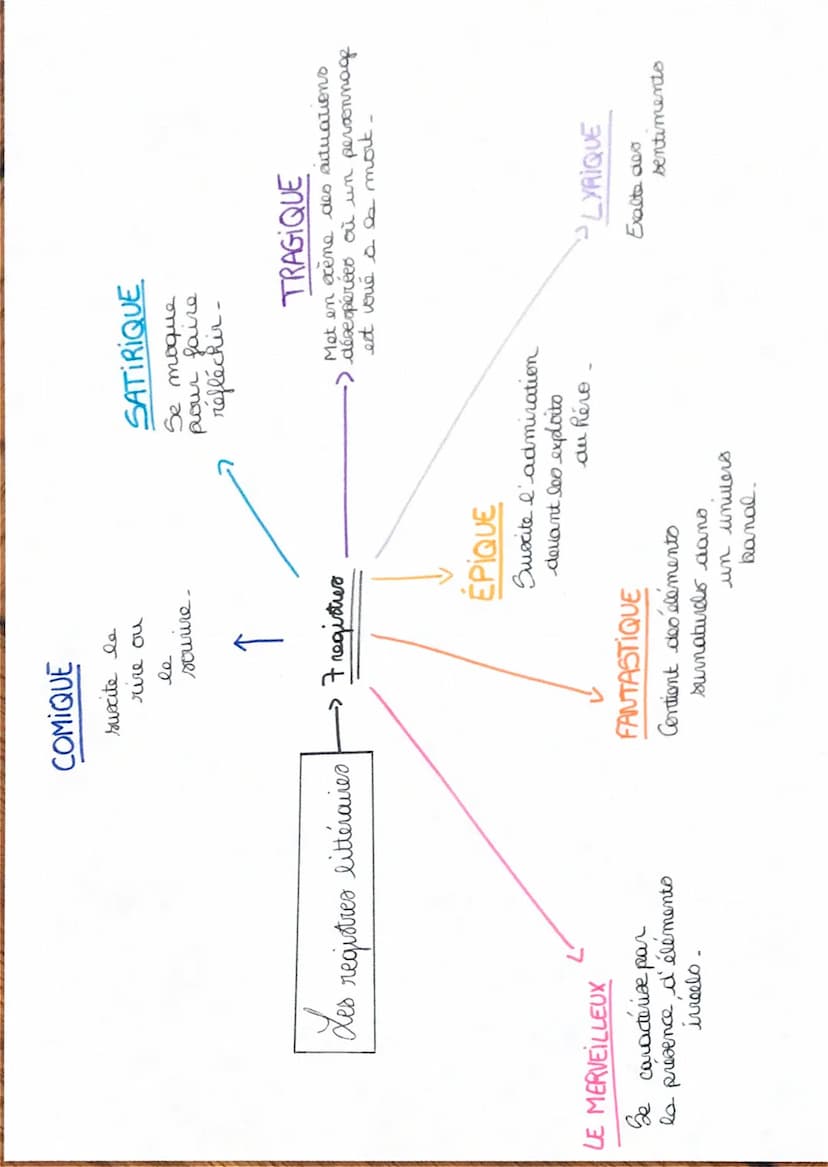 Les registres littéraires
7 registres
COMIQUE
suscite le
rire ou
le
sourire.
SATIRIQUE
Se moque
pour faire
réfléchir.
TRAGIQUE
Met en scène des situations
désespérées où un personnage
est voué a la mort.
LYRIQUE
Exalte des
sentiments
ÉPIQUE
Suscite l'admiration
devant les exploits
du héro.
FANTASTIQUE
Contient des éléments
surnaturels dans
un univers
banal.
LE MERVEILLEUX
Se caractérise par
la présence d'éléments
irréels.